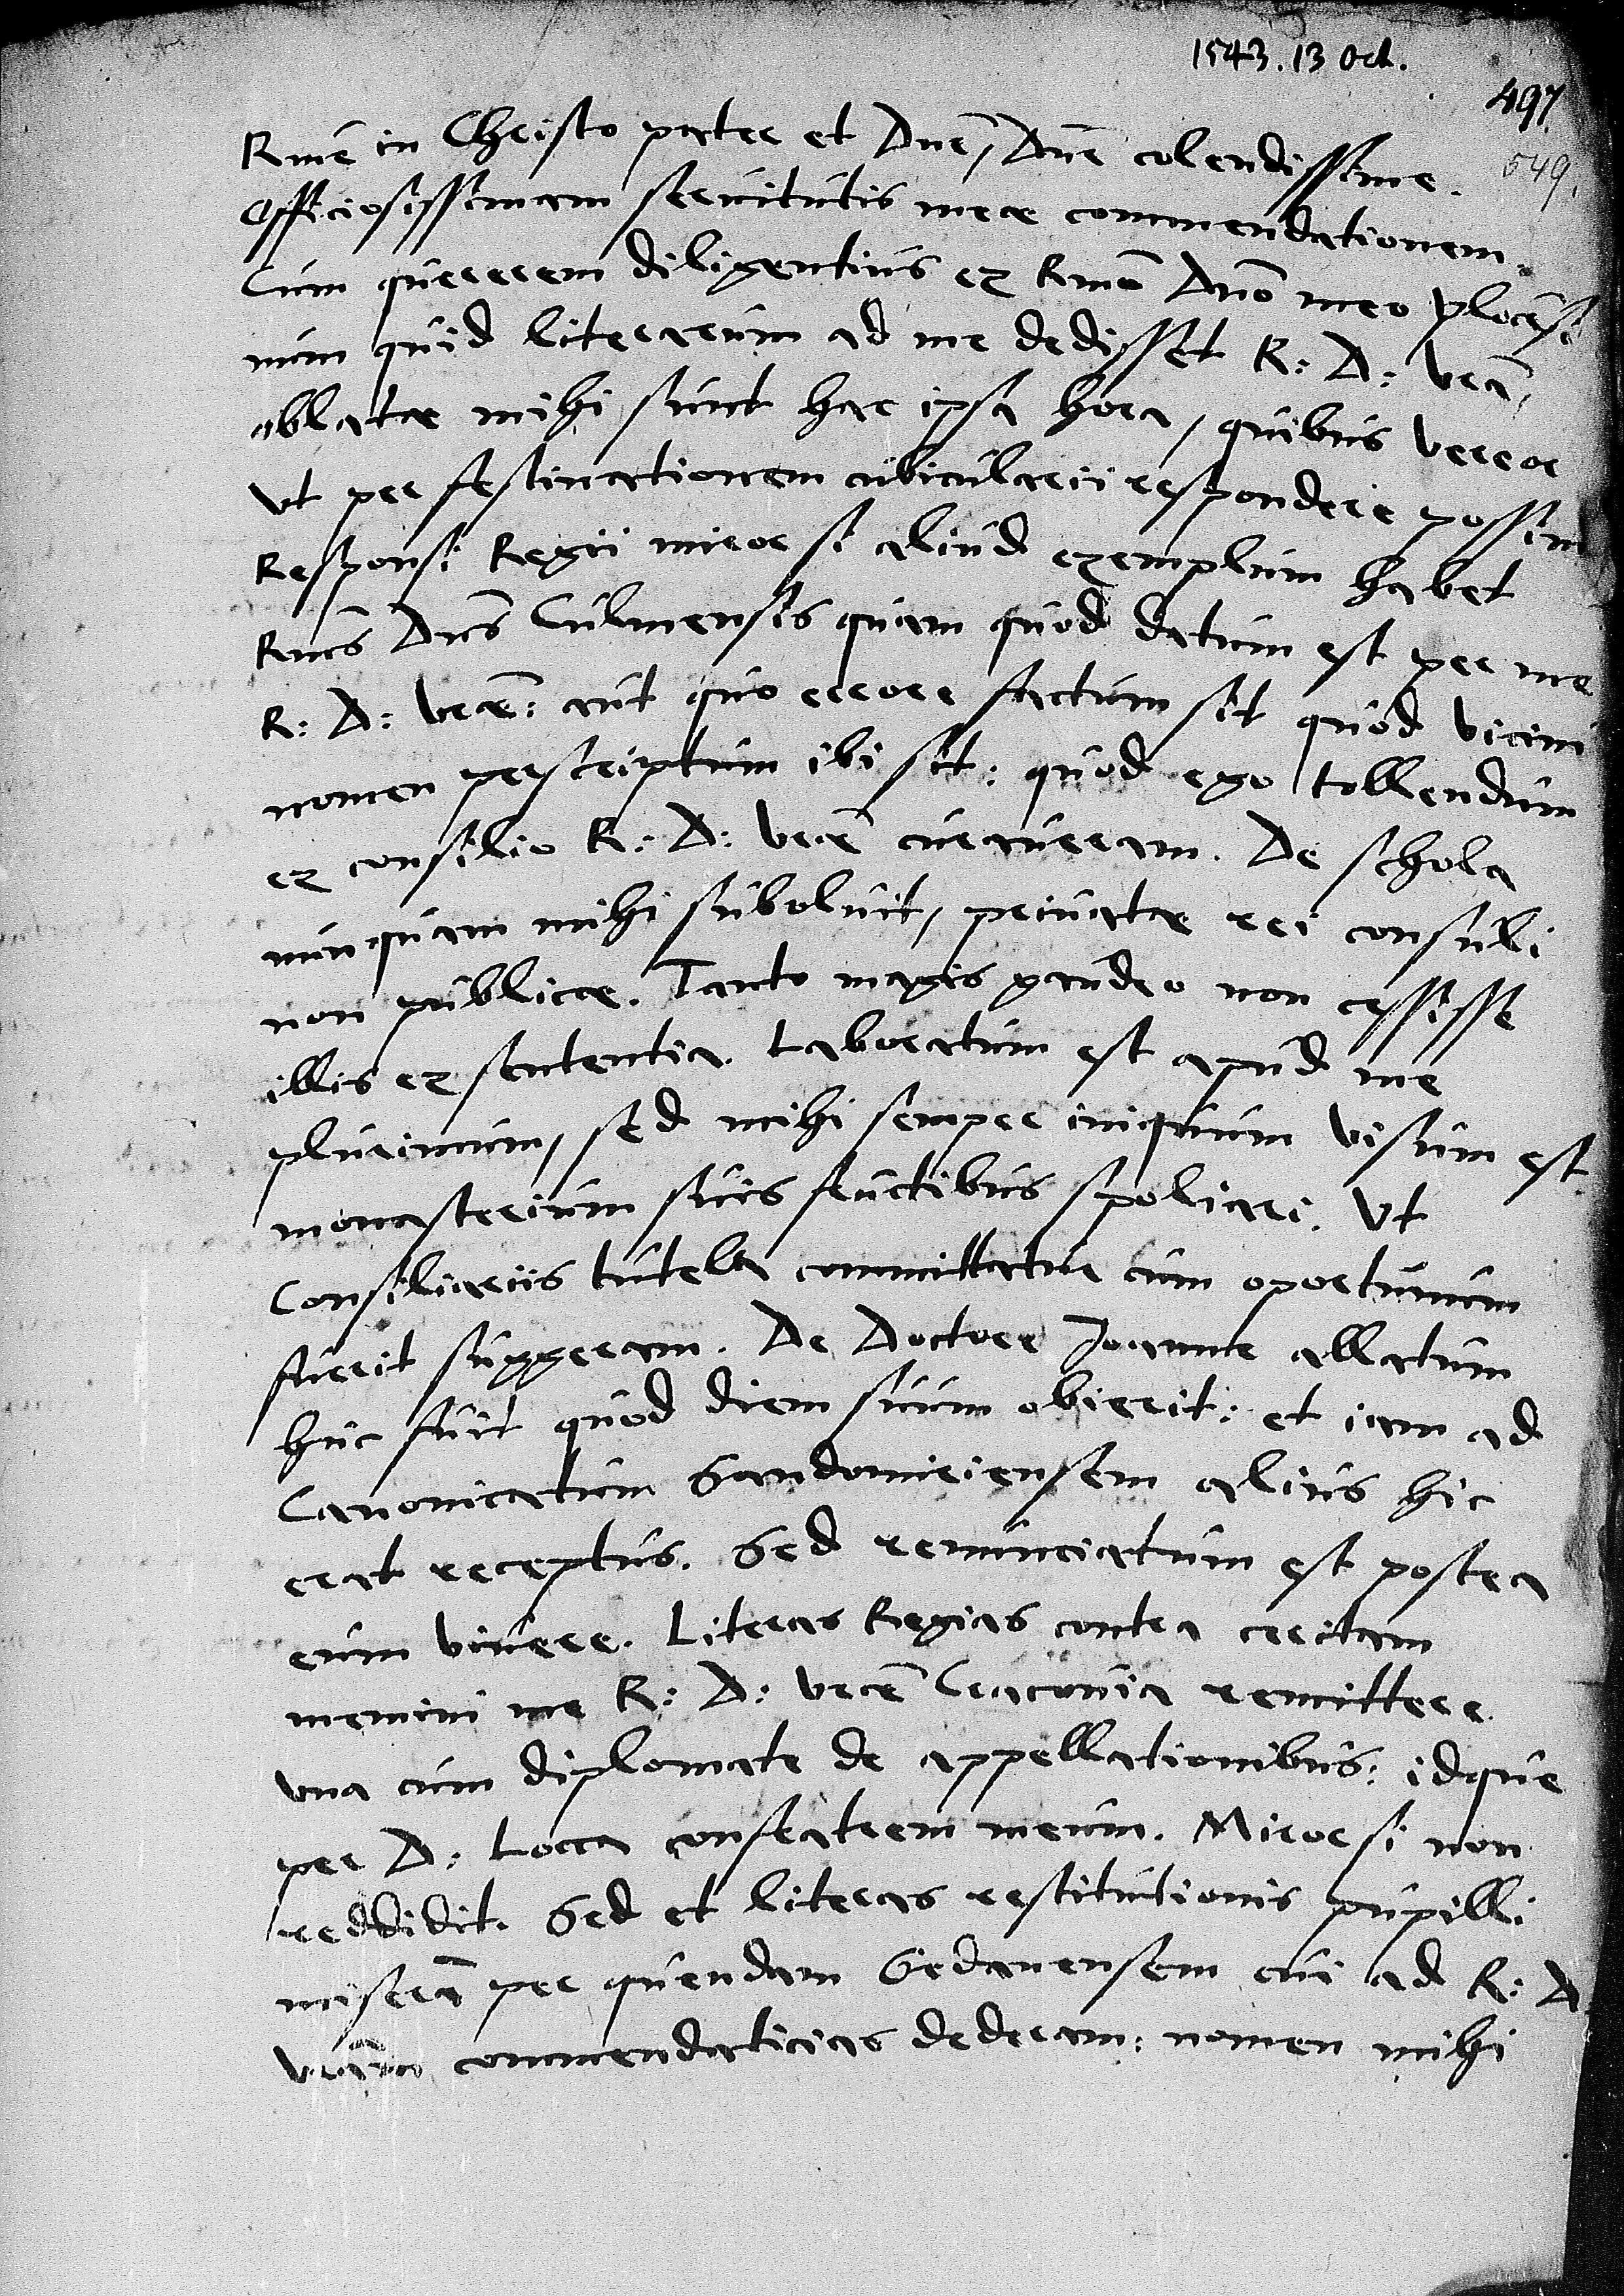 1543. 13 Oct.
497.
549.
Rme in Christo pater et Dne, Dne colendissime.
Officiosissimam seruitutis meae commendationem.
Cum quererem diligentius ex Rmo Dno meo Plocensi
num quid literarum ad me dedisset R: D: vra,
oblatae mihi sunt hac ipsa hora, quibus vereor
vt per festinationem cubicularii respondere possim
Responsi Regii miror si aliud exemplum habet
Rmus Dns Culmensis quam quod datum est per me
R: D: vrae: aut quo errore factum sit quod vicini
nomen perscriptum ibi sit: quod ego tollendum
ex consilio R: D: vrae curaueram. De schola
nunquam mihi suboluit, priuatae rei consuli
non publicae. Tanto magis gaudeo non cessisse
illis ex sententia. Laboratum est apud me
plurimum, sed mihi semper iniquum visum est
monasterium suis fructibus spoliari. Vt
Consiliariis tutela committatur cum oportunum
fuerit suggeram. De Doctore Joanne allatum
huc fuit quod diem suum obierit: et iam ad
Canonicatum Sandomiriensem alius hic
erat receptus. Sed renunciatum est postea
eum viuere. Literas Regias contra
memini me R: D: vrae Cracouia remittere
vna cum diplomate de appellationibus: idque
per D: Locca confratrem meum. Miror si non
reddidit. Sed et literas restitutionis pupilli
misera per quendam Gedanensem cui ad R: D
vram commendaticias dederam: nomen mihi